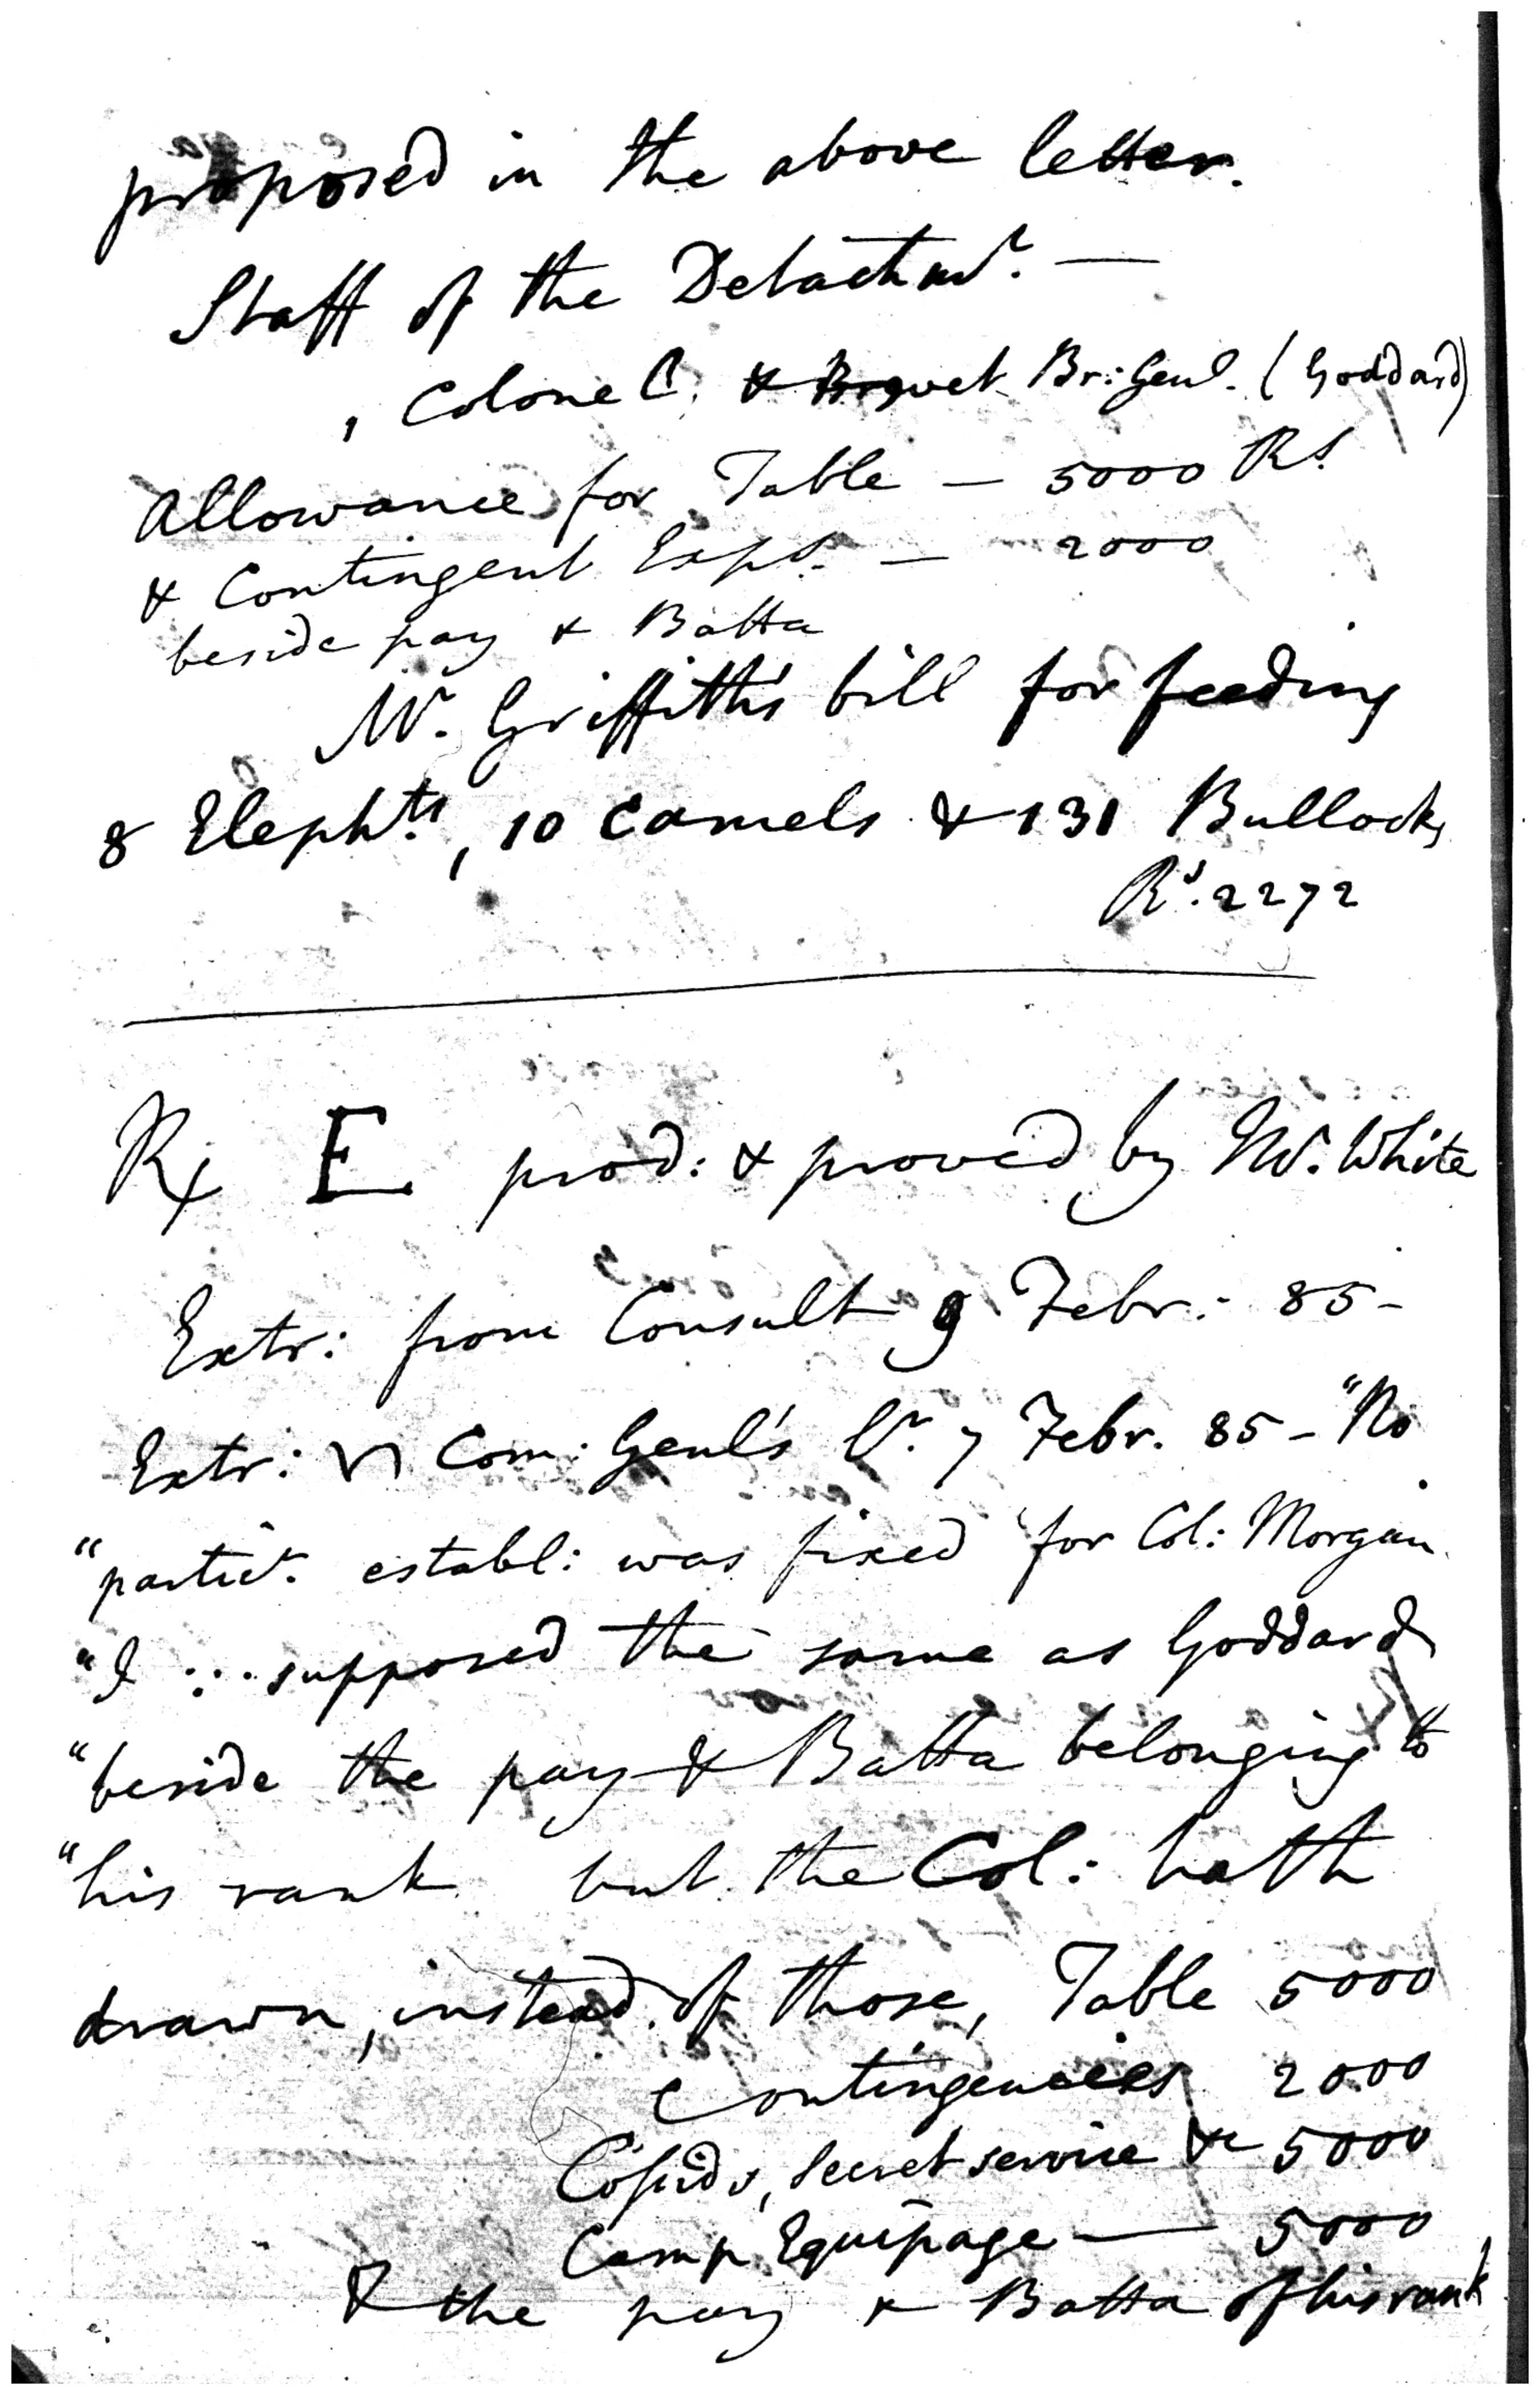 proposed in the above letter.
Staff of the Detachmt. —
1 Colonel. & Brevet Br: Genl. (Goddard)
Allowance for Table — 5000 Rs.
& Contingent Exps. — 2000
beside pay & Batta
Mr. Griffith's bill for feeding
8 Elephts, 10 Camels & 131 Bullocks
Rs. 2272
E prod: & proved by Mr. White
Extr: from Consult 9 Febr: 85 -
Extr: Com: Genl's Lr. 7 Febr. 85 - "No
"partic. establ: was fixed for Col: Morgan
"I ∴ supposed the same as Goddard
"beside the pay & Batta belonging to
"his rank but the Col: hath
drawn, instead of those, Table 5000
Contingencies 2000
Cossids, secret service &c 5000
Camp Equipage — 5000
& the pay & Batta of his rank